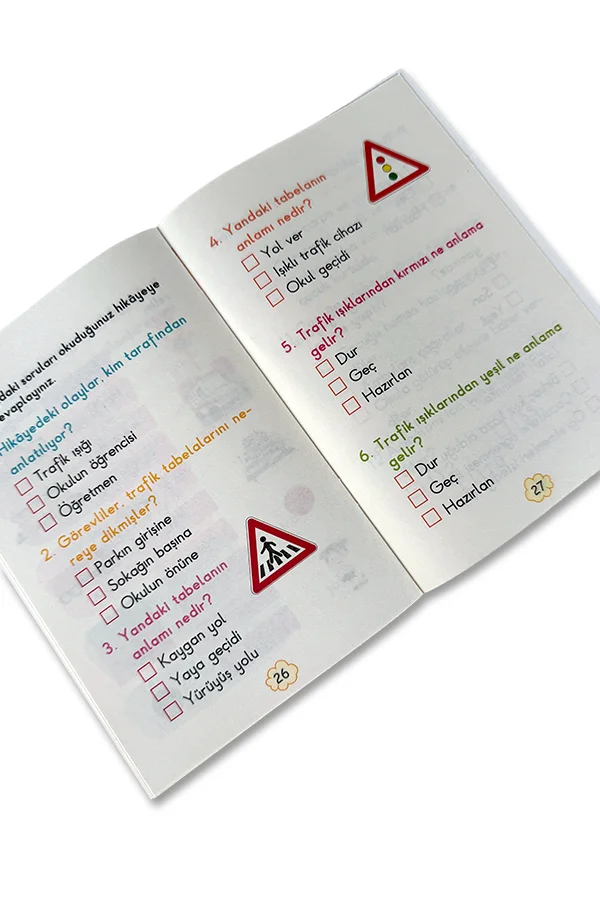 daki soruları okuduğunuz hikâyeye
evaplayınız.
Hikâyedeki olaylar, kim tarafından
anlatılıyor?
Trafik ışığı
Okulun öğrencisi
Öğretmen
2. Görevliler, trafik tabelalarını ne-
reye dikmişler?
Parkın girişine
Sokağın başına
Okulun önüne
3. Yandaki tabelanın
anlamı nedir?
Kaygan yol
Yaya geçidi
Yürüyüş yolu
26
4. Yandaki tabelanın
anlamı nedir?
Yol ver
Işıklı trafik cihazı
Okul geçidi
5. Trafik ışıklarından kırmızı ne anlama
gelir?
Dur
Geç
Hazırlan
6. Trafik ışıklarından yeşil ne anlama
gelir?
Dur
Geç
Hazırlan
27